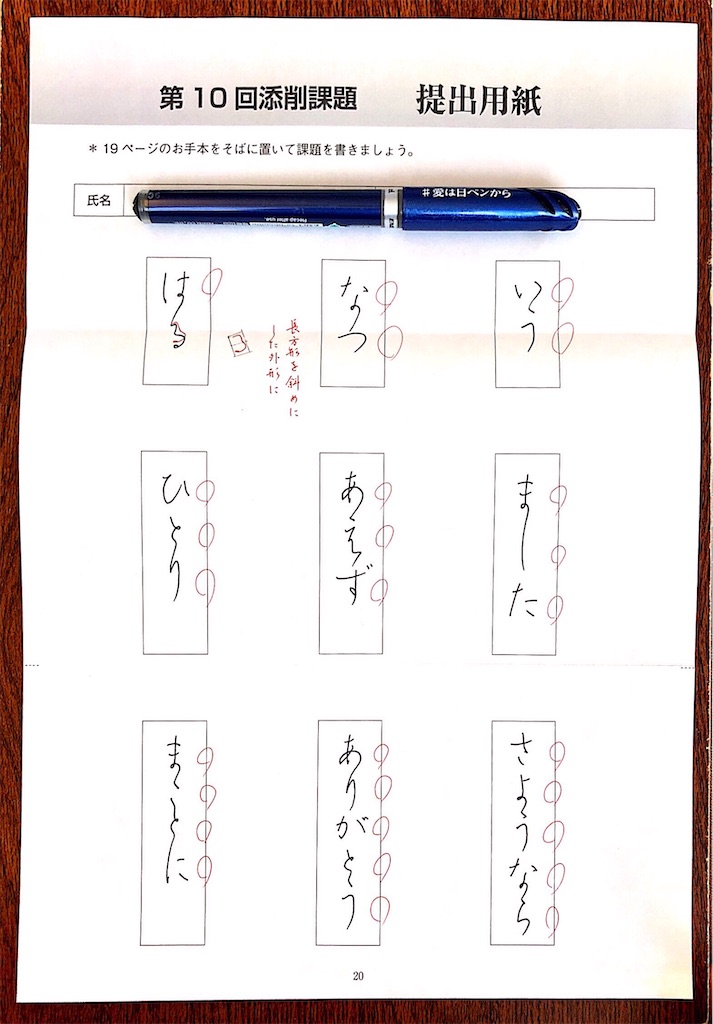 第10回添削課題 提出用紙
＊19ページのお手本をそばに置いて課題を書きましょう。
氏名
#愛は日ペンから
Recap after use.
いう
なつ
はる
長方形を斜めに
した外形に
る
ました
あえず
ひとり
さようなら
ありがとう
まことに
20